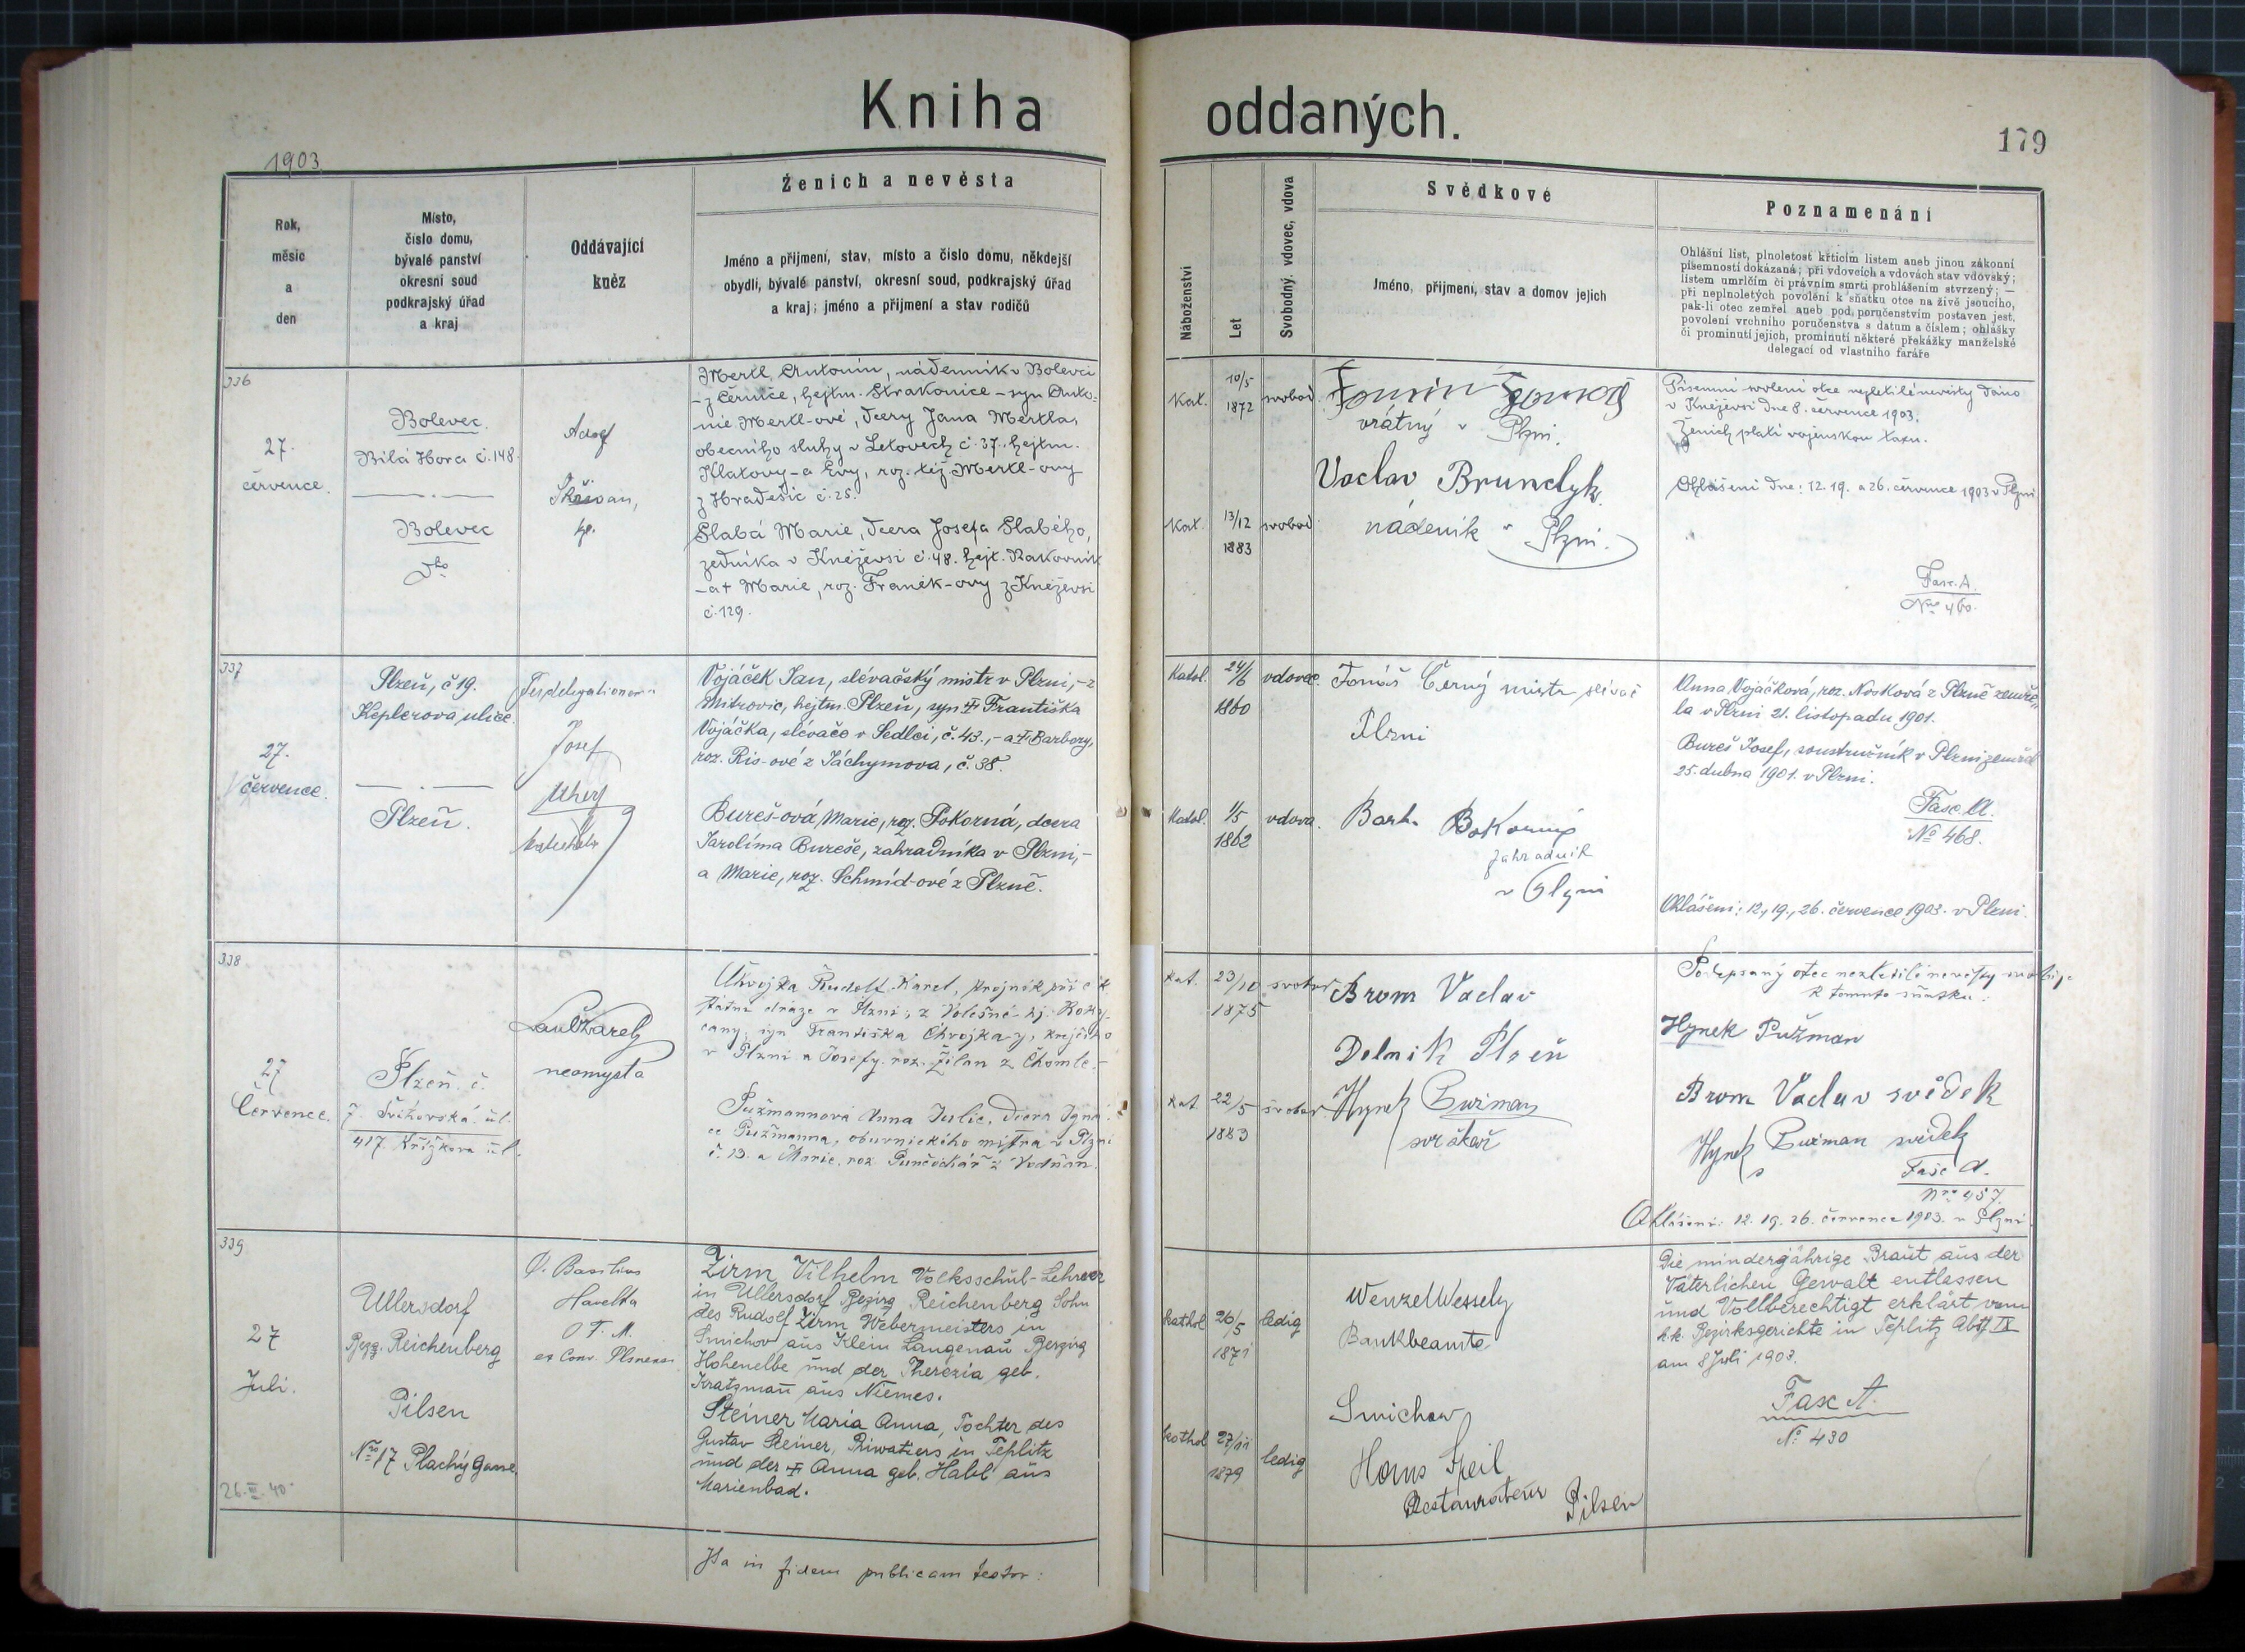 Kniha oddaných.
179
1903
Rok,
měsíc
a
den
Místo,
číslo domu,
bývalé panství
okresní soud
podkrajský úřad
a kraj
Oddávající
kněz
Ženich a nevěsta
Jméno a přijmení, stav, místo a číslo domu, někdejší
obydlí, bývalé panství, okresní soud, podkrajský úřad
a kraj; jméno a přijmení a stav rodičů
Náboženství
Let
Svobodný, vdovec, vdova
Svědkové
Jméno, přijmení, stav a domov jejich
Poznamenání
Ohlášní list, plnoletosť křticím listem aneb jinou zákonní
písemností dokázaná; při vdovcích a vdovách stav vdovský;
listem umrlčím či právním smrti prohlášením stvrzený; —
při neplnoletých povolení k sňatku otce na živě jsoucího,
pak-li otec zemřel aneb pod poručenstvím postaven jest,
povolení vrchního poručenstva s datum a číslem; ohlášky
či prominutí jejich, prominutí některé překážky manželské
delegací od vlastního faráře
336
27.
července.
Bolevec.
Bílá Hora č. 148.
Bolevec
dto
Adolf
Skřivan,
kp.
Mertl Antonín, nádenník v Bolevci
- z Černíče, hejtm. Strakonice - syn Anto-
nie Mertl-ové, dcery Jana Mertla,
obecního sluhy v Letovech č. 37. hejtm.
Klatovy - a Evy, roz. též Mertl-ovy
z Hradešic č. 25.
Slabá Marie, dcera Josefa Slabého,
zedníka v Kněževsi č. 48. hejt. Rakovník
- a + Marie, roz. Franěk-ovy z Kněževsi
č. 129.
kat.
10/5
1872
svobod.
kat.
13/12
1883
svobod.
vrátný v Plzni.
Vaclav Brundyk
nádeník v Plzni.
Písemní svolení otce nezletilé nevěsty dáno
v Kněževsi dne 8. července 1903.
Ženich platí vojenskou taxu.
Ohlášení dne: 12. 19. a 26. července 1903 v Plzni
Fasc. A.
Nro 460.
337
27.
července.
Plzeň, č 19.
Keplerova ulice.
Plzeň.
Josef
Uher
Vojáček Jan, slévačský mistr v Plzni, - z
Mitrovic, hejtm. Plzeň, syn † Františka
Vojáčka, slévače v Sedlci, č. 43., - a † Barbory,
roz. Ris-ové z Jáchymova, č. 38.
Bureš-ová, Marie, roz. Pokorná, dcera
Jarolíma Bureše, zahradníka v Plzni, -
a Marie, roz. Schmíd-ové z Plzně.
Katol.
24/6
1860
vdovec.
Katol.
1/5
1862
vdova.
Tomáš Černý mistr slívač
Plzni
Barh. Bokorný
zahradník
v Plzni
Anna Vojáčková, roz. Nosková z Plzně zemře-
la v Plzni 21. listopadu 1901.
Bureš Josef, soustružník v Plzni zemřel
25. dubna 1901. v Plzni.
Fasc. A.
No 468.
Ohlášení: 12., 19., 26. července 1903. v Plzni.
338
27
Července.
Plzeň. č.
7. Švihovská ul.
417. Křižkova ul.
neomysta
Chvojka Rudolf Karel, krojník při c. k.
státní dráze v Plzni, z Volešné - hj. Roky-
cany, syn Františka Chvojka-y, krejčího
v Plzni a Josefy roz. Žilan z Chomle. -
Pužmannova Anna Julie, dcera Igná-
ce Pužmanna, obuvnického mistra v Plzni
č. 13. a Marie, roz. Punčochář z Vodňan.
kat.
23/10
1875
svobod.
kat.
22/5
1883
svobod.
Brom Vaclav
Delnik Plzeň
Hynek Pužman
svrškař
Podepsaný otec nezletilé nevěsty svoluje
k tomuto sňatku:
Hynek Pužman
Brom Vaclav svědek
Hynek Pužman svědek
Fasc A.
Nro 457.
Ohlášení: 12. 19. 26. července 1903. v Plzni.
339
27
Juli.
26. III. 40
Ullersdorf
Bezg. Reichenberg
Pilsen
No 17 Plachý Gasse.
P. Basilius
Havelka
O. F. M.
ex Conv. Plsnensi
Zirm Vilhelm Volksschul-Lehrer
in Ullersdorf Bezirg Reichenberg Sohn
des Rudolf Zirm Webermeisters in
Smichov aus Klein Langenau Bezirg
Hohenelbe und der Therezia geb.
Kratzmann aus Niemes.
Steiner Maria Anna, Tochter des
Gustav Steiner, Priwatiers in Teplitz
und der † Anna geb. Habl aus
Marienbad.
kathol
26/5
1871
ledig
kathol
27/11
1879
ledig
Wenzel Wessely
Bankbeamte
Smichow
Hans Speil
Restaurateur Pilsen
Die minderjährige Braut aus der
Väterlichen Gewalt entlassen
und Vollberechtigt erklärt vom
k.k. Bezirksgerichte in Teplitz Abt. IX
am 8 Juli 1903.
Fasc A.
No 430
Ita in fidem publicam testor: